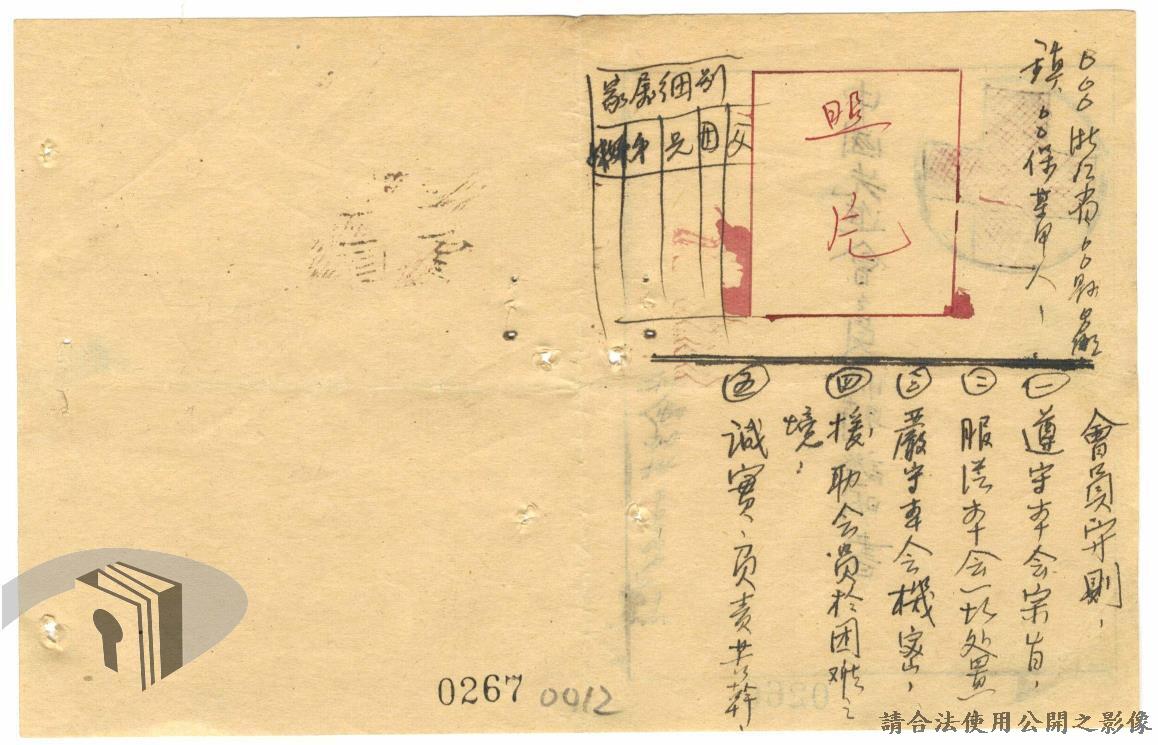 ㄅㄅㄅ浙江省ㄅㄅ縣
鎮ㄅㄅ保 甲人、
照
片
家屬細別
父
母
兄
弟
會員守則、
㊀遵守本会宗旨、
㊁服從本会一切處置
㊂嚴守本会機密、
㊃援助会員於困难之
境、
㊄誠實、負責共幹、
0267
0012
請合法使用公開之影像